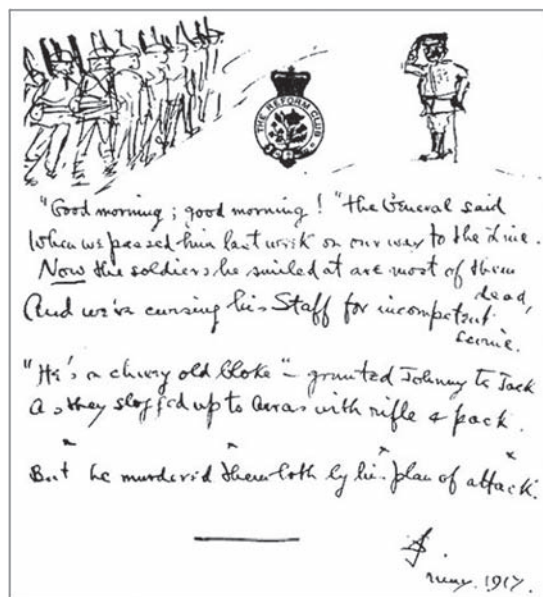 THE REFORM CLUB
"Good morning; good morning!" the General said
When we passed him last week on our way to the Line.
Now the soldiers he smiled at are most of them
dead,
And we're cursing his Staff for incompetent
swine.
"He's a cheery old bloke" – grunted Johnny to Jack
As they slogged up to Arras with rifle & pack.
But he murdered them both by his plan of attack.
May. 1917.